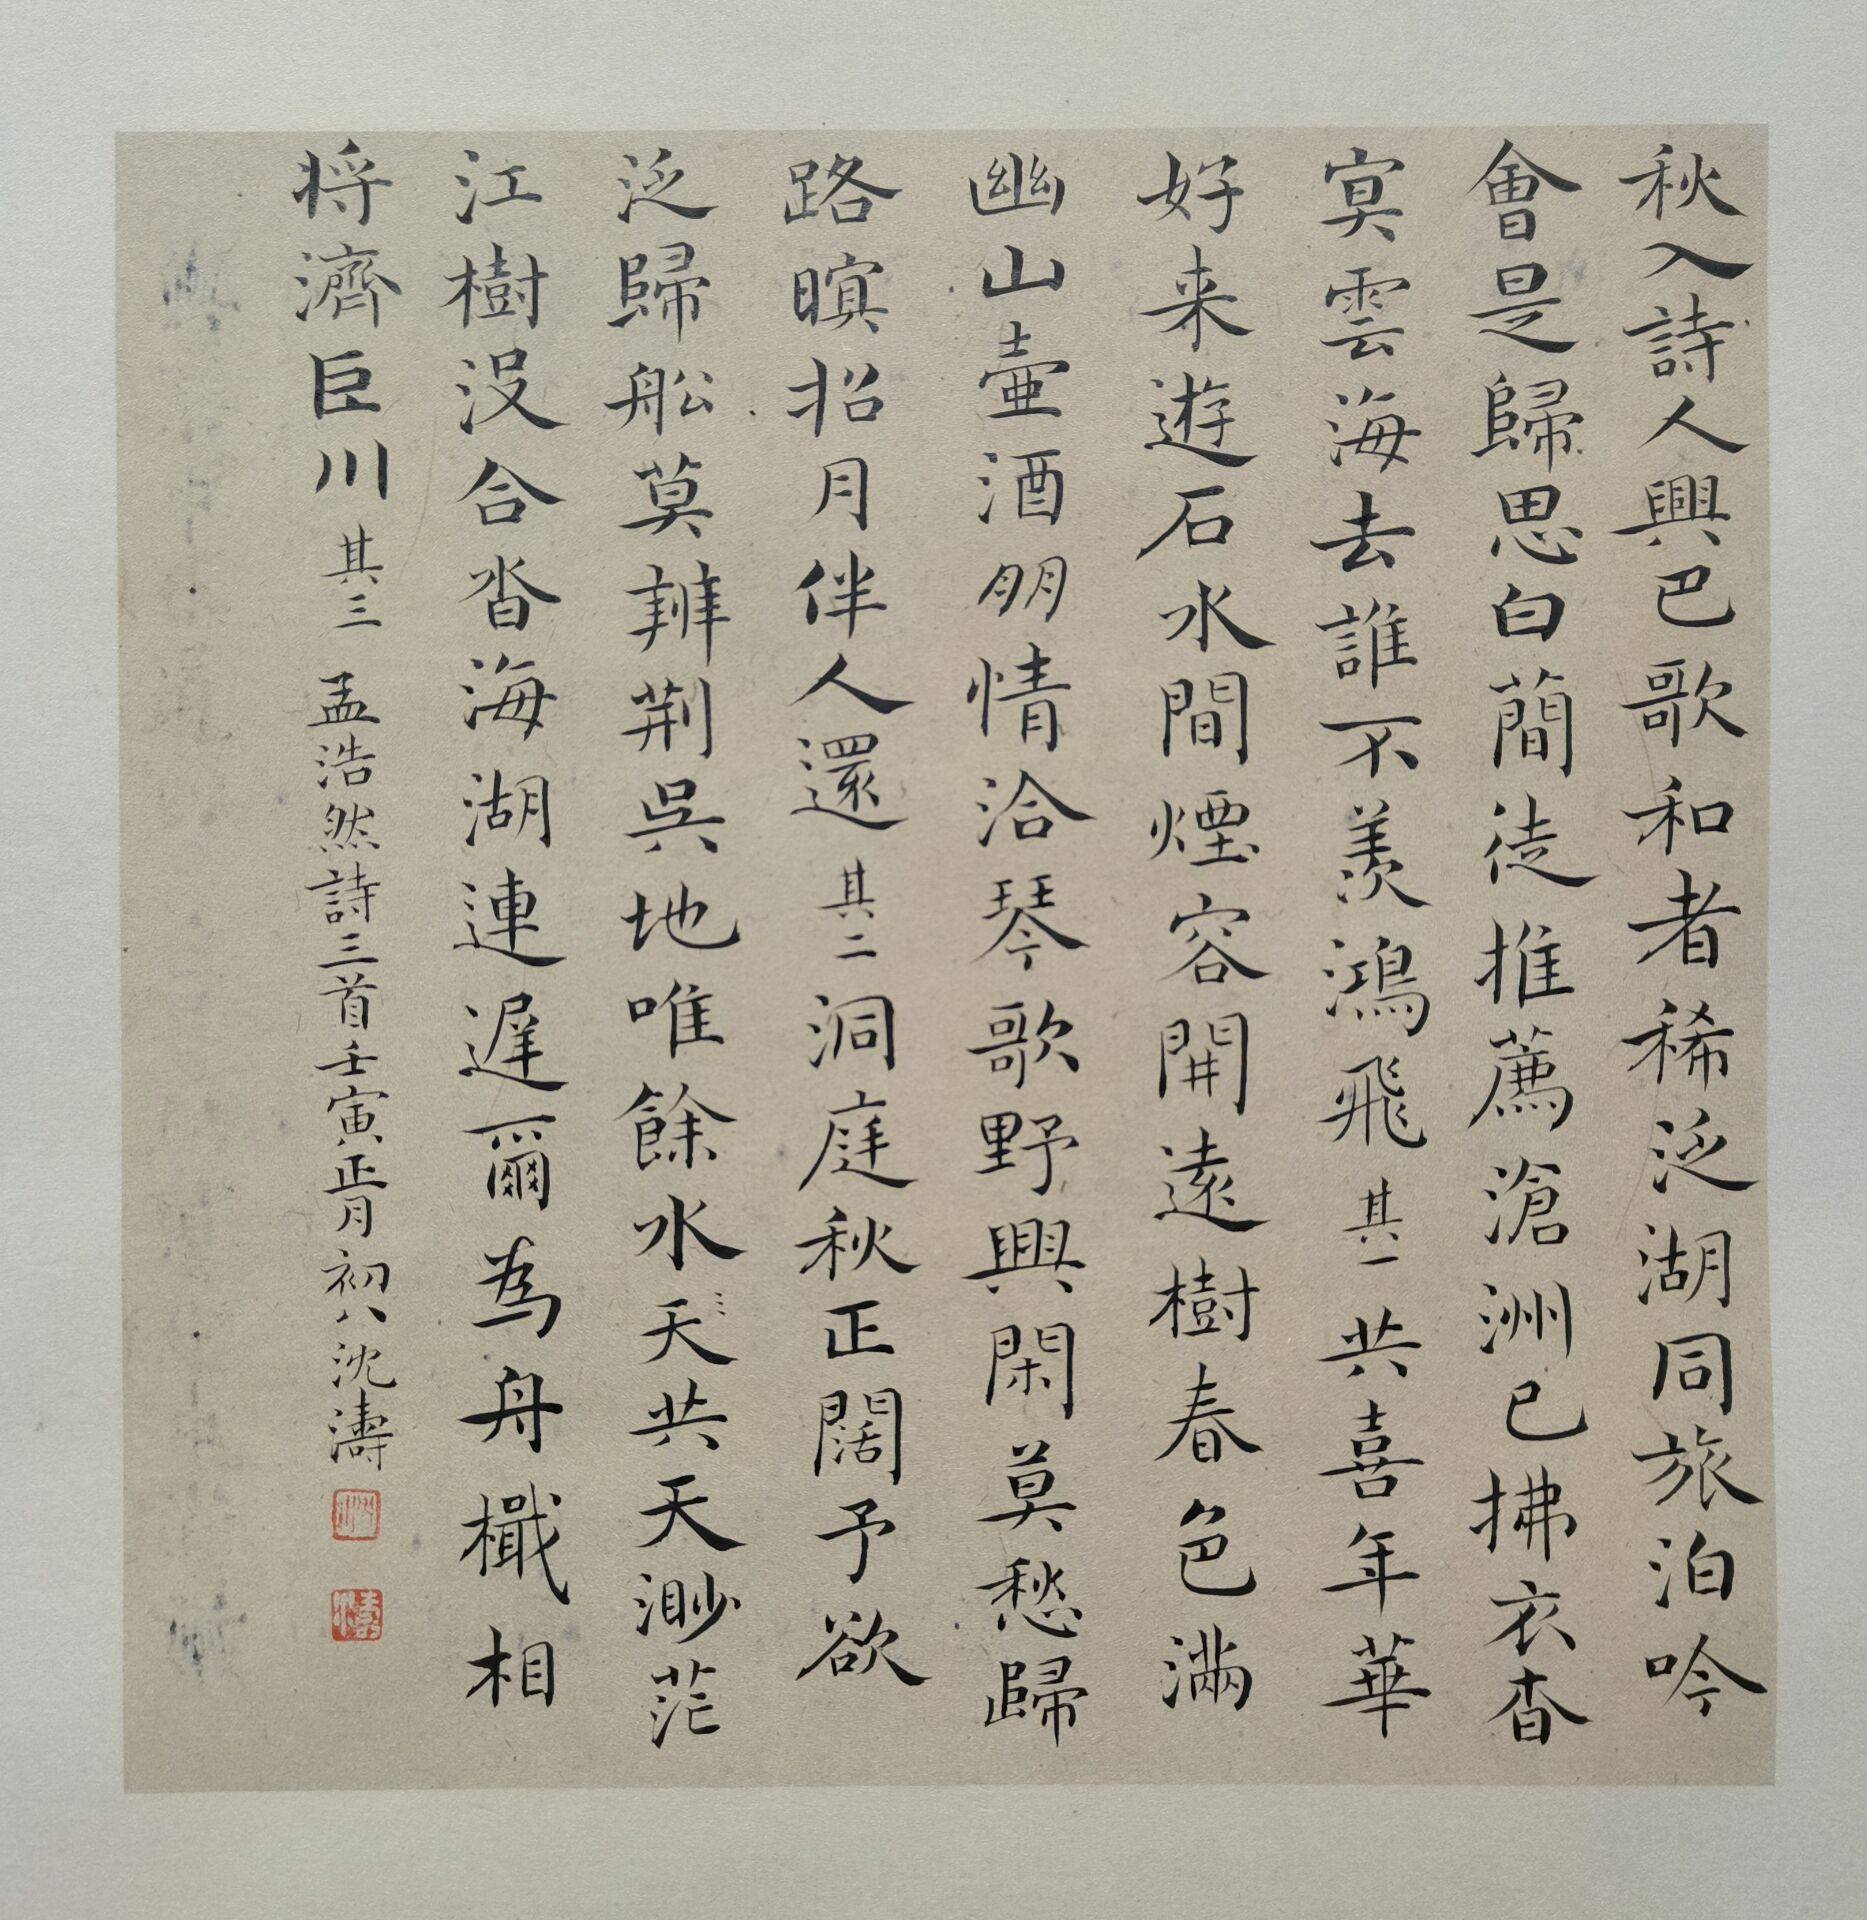 秋入詩人興巴歌和者稀泛湖同旅泊吟
會是歸思白簡徒推薦滄洲已拂衣杳
冥雲海去誰不羨鴻飛 其一 共喜年華
好来遊石水間煙容開遠樹春色滿
幽山壷酒朋情洽琴歌野興閑莫愁歸
路暝招月伴人還 其二 洞庭秋正闊予欲
泛歸舩莫辨荆吳地唯餘水天共天渺茫
江樹没合沓海湖連遲爾為舟檝相
将濟巨川 其三 孟浩然詩三首壬寅正月初八沈濤